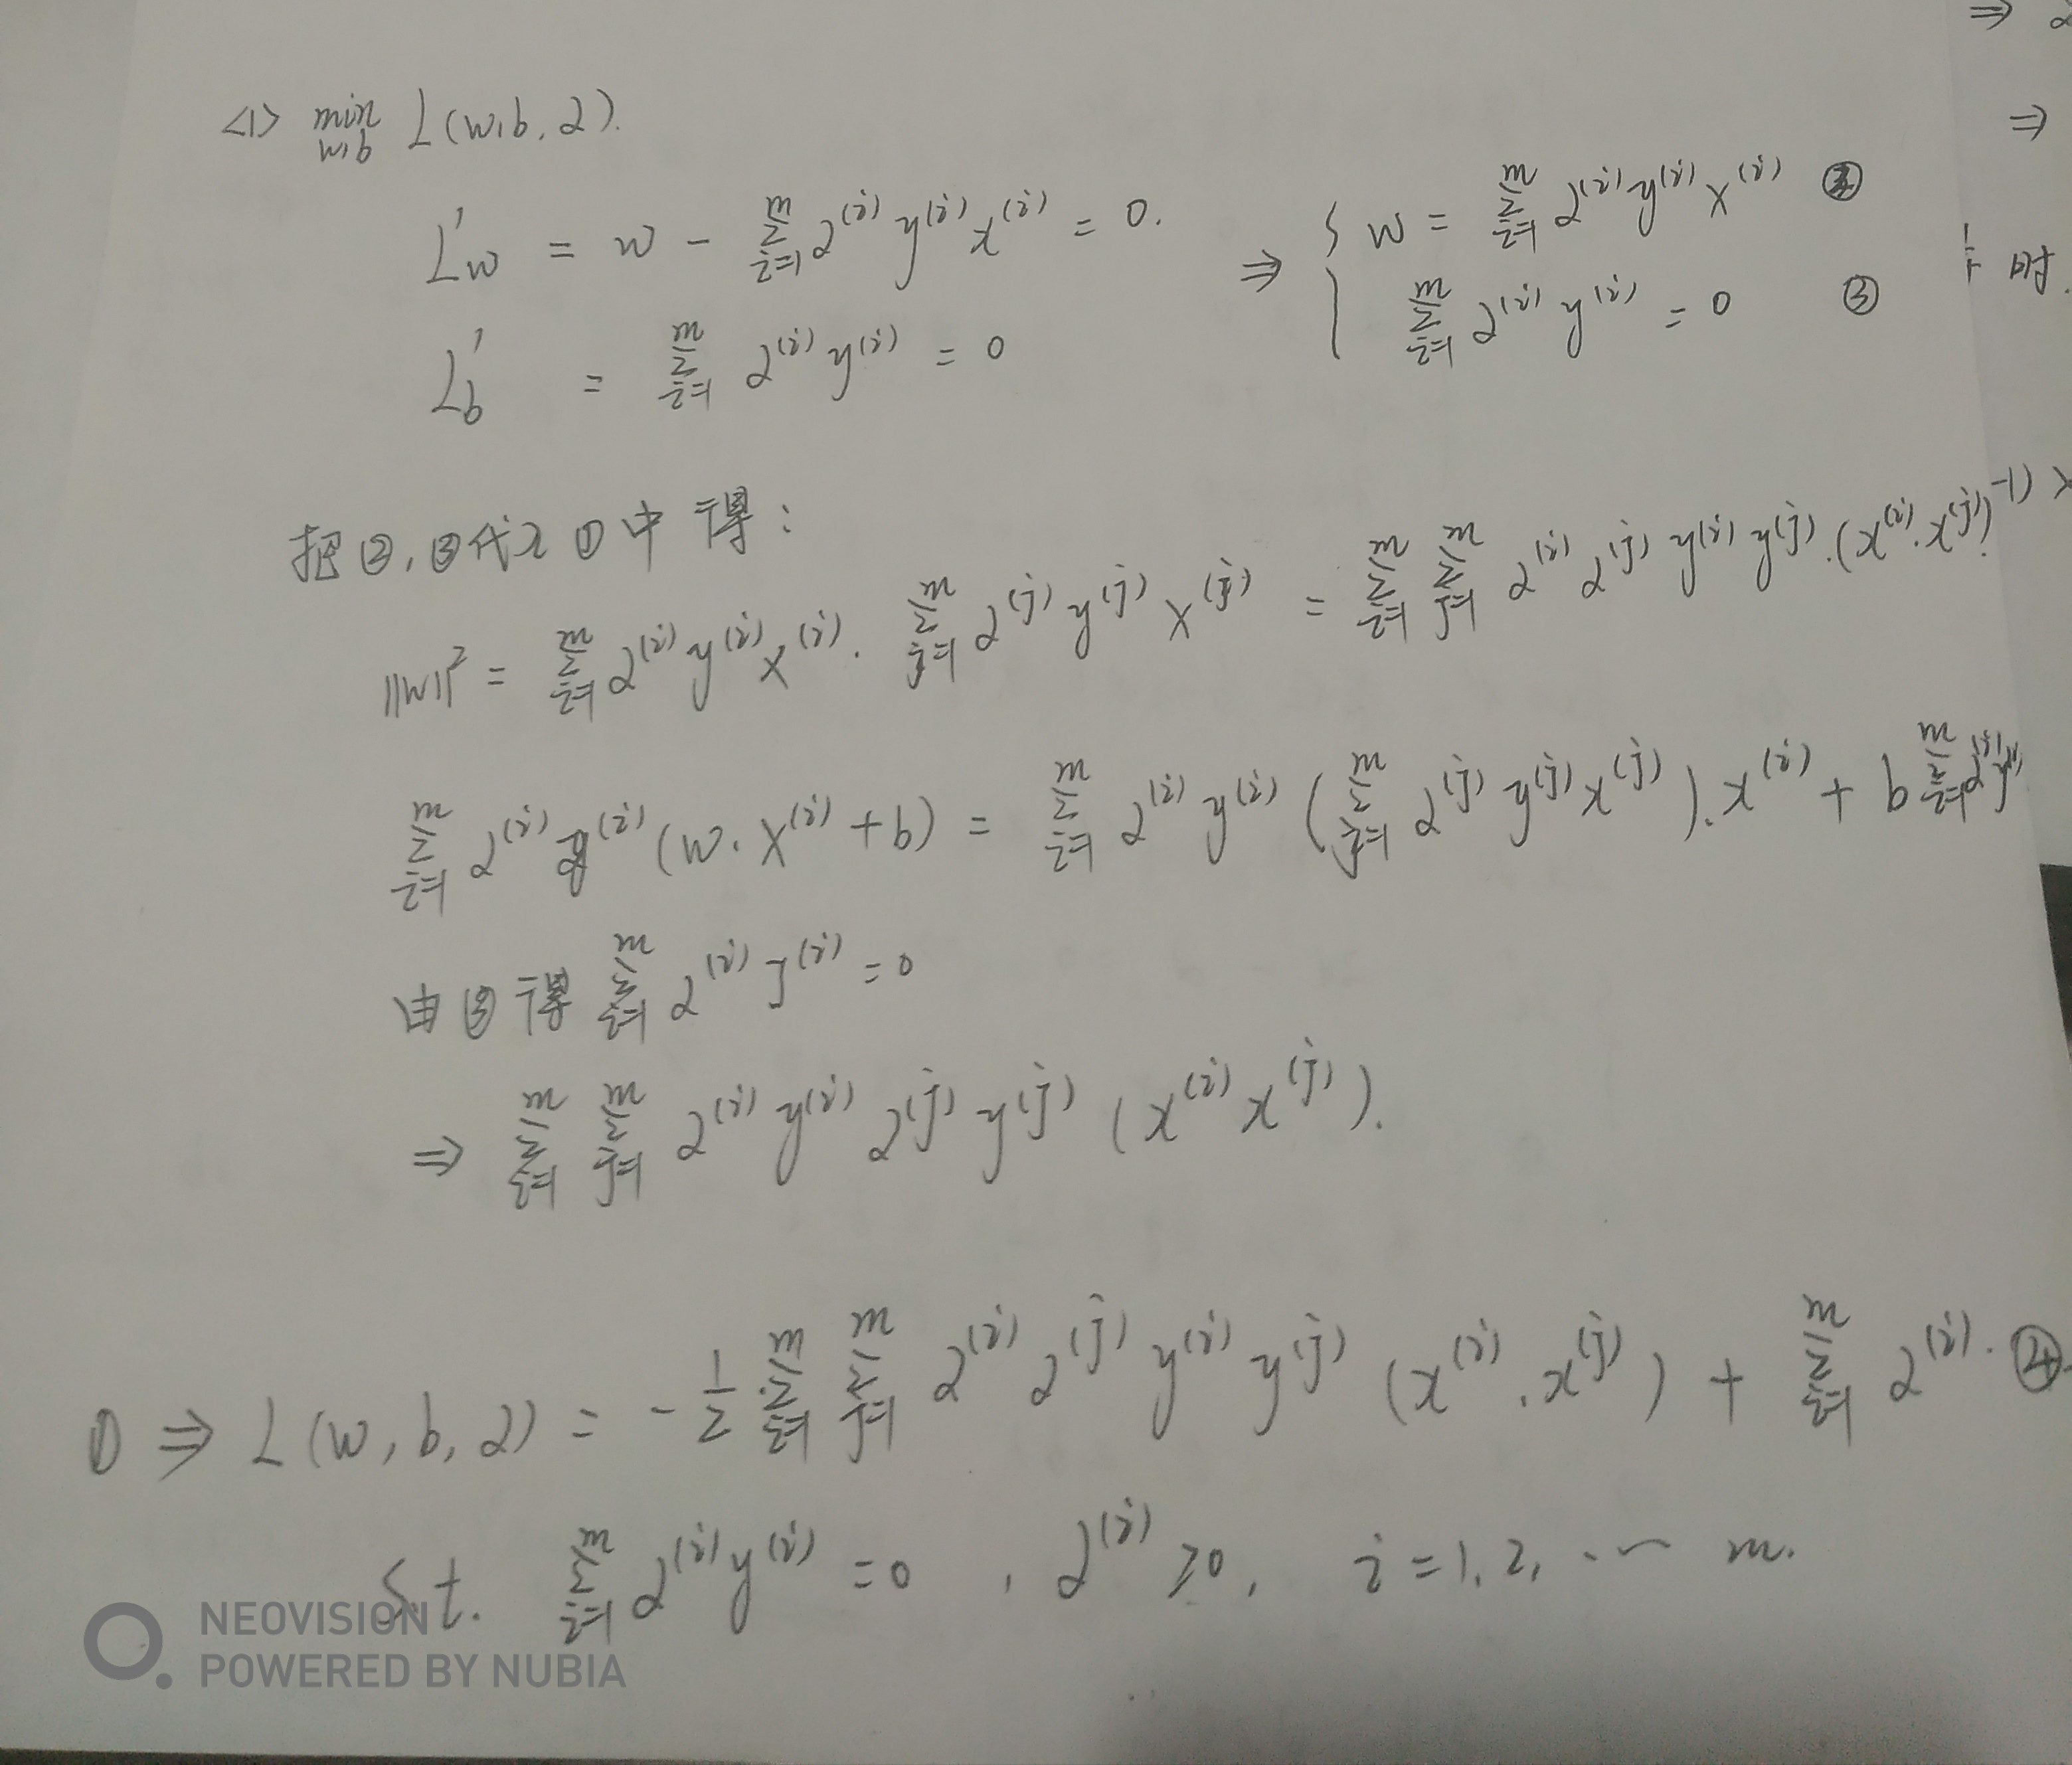 <1> min_{w,b} L(w,b,α).
L'_w = w - Σ_{i=1}^{m} α^{(i)} y^{(i)} x^{(i)} = 0.
L'_b = Σ_{i=1}^{m} α^{(i)} y^{(i)} = 0
⇒ { w = Σ_{i=1}^{m} α^{(i)} y^{(i)} x^{(i)} ②
Σ_{i=1}^{m} α^{(i)} y^{(i)} = 0 ③
把②,③代入①中得:
||w||² = Σ_{i=1}^{m} α^{(i)} y^{(i)} x^{(i)} · Σ_{j=1}^{m} α^{(j)} y^{(j)} x^{(j)} = Σ_{i=1}^{m} Σ_{j=1}^{m} α^{(i)} α^{(j)} y^{(i)} y^{(j)} · (x^{(i)} · x^{(j)})
Σ_{i=1}^{m} α^{(i)} y^{(i)} (w · x^{(i)} + b) = Σ_{i=1}^{m} α^{(i)} y^{(i)} (Σ_{j=1}^{m} α^{(j)} y^{(j)} x^{(j)}) · x^{(i)} + b Σ_{i=1}^{m} α^{(i)} y^{(i)}
由③得 Σ_{i=1}^{m} α^{(i)} y^{(i)} = 0
⇒ Σ_{i=1}^{m} Σ_{j=1}^{m} α^{(i)} y^{(i)} α^{(j)} y^{(j)} (x^{(i)} x^{(j)}).
① ⇒ L(w,b,α) = - 1/2 Σ_{i=1}^{m} Σ_{j=1}^{m} α^{(i)} α^{(j)} y^{(i)} y^{(j)} (x^{(i)} · x^{(j)}) + Σ_{i=1}^{m} α^{(i)}. ④
S.t. Σ_{i=1}^{m} α^{(i)} y^{(i)} = 0 , α^{(i)} ≥ 0, i = 1, 2, ... m.
⇒
⇒
时.
NEOVISION
POWERED BY NUBIA